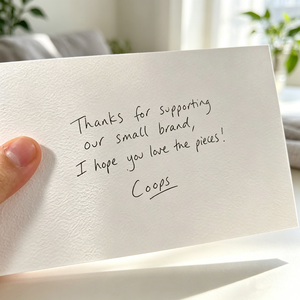 Thanks for supporting
our small brand,
I hope you love the pieces!
Coops